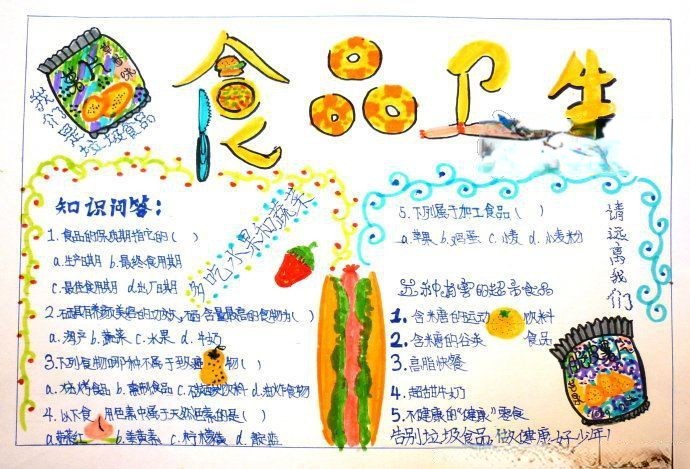 食品卫生
薯片
味
我们是垃圾食品
知识问答：
1.食品的保质期指它的（ ）
a.生产日期 b.最终食用期
c.最佳食用期 d.出厂日期
多吃水果和蔬菜
a.海产 b.蔬菜 c.水果 d.牛奶
3.下列食物哪种不属于致癌 物（ ）
a.烧烤食品 b.熏制食品 d.油炸食物
4.以下食 用色素中属于天然色素的是（ ）
b.姜黄素 c.柠檬黄 d.靛蓝
5.下列属于加工食品（ ）
a.苹果 b.鸡蛋 c.小麦 d.小麦粉
请远离我们
五种有害的超市食品
1.含糖的运动 饮料
2.含糖的谷类 食品
3.高脂快餐
4.超甜牛奶
5.不健康的“健康”零食
告别垃圾食品，做健康好少年！